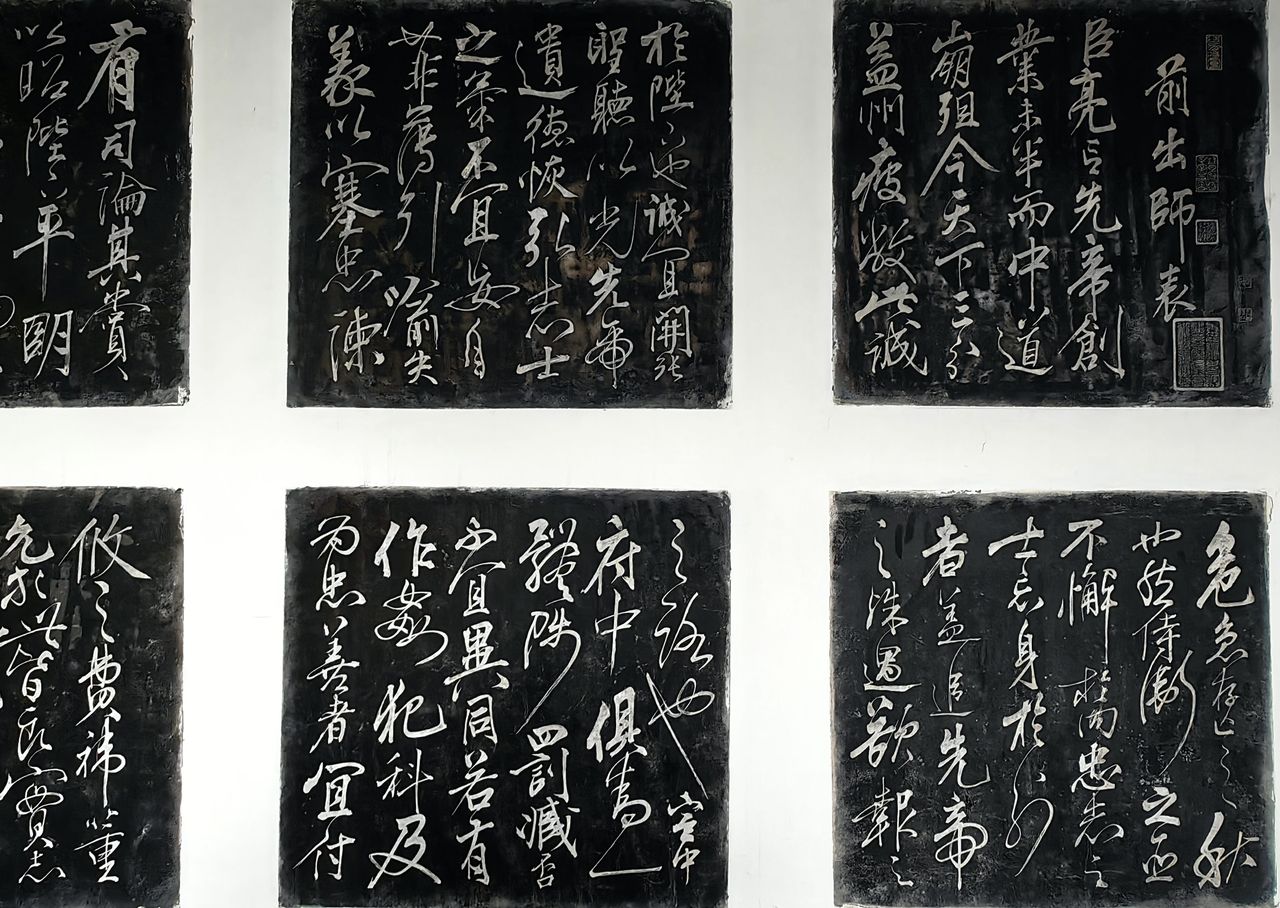 前出師表
臣亮言先帝創
業未半而中道
崩殂今天下三分
益州疲敝此誠
危急存亡之秋
也然侍衛之臣
不懈於內忠志之
士忘身於外
者蓋追先帝
之殊遇欲報之
於陛下也誠宜開張
聖聽以光先帝
遺德恢弘志士
之氣不宜妄自
菲薄引喻失
義以塞忠諫
之路也宮中
府中俱為一
體陟罰臧否
不宜異同若有
作姦犯科及
為忠善者宜付
有司論其賞
以昭陛下平明
攸之費禕董
允等此皆良實志